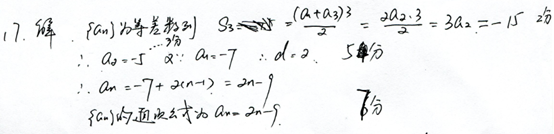 17. 解 {an}为等差数列 S3 = (a1+a3)3/2 = 2a2·3/2 = 3a2 = -15 2分
∴ a2=-5 …3分 又∵ a1=-7 ∴ d=2. 5分
∴ an = -7+2(n-1) = 2n-9
{an}的通项公式为 an=2n-9. 7分